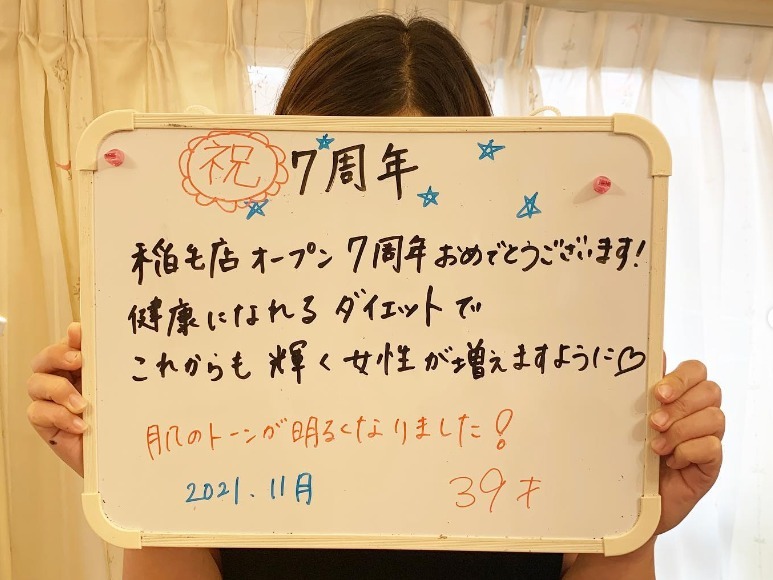 祝 7周年
稲毛店 オープン 7周年 おめでとうございます!
健康になれる ダイエットで
これからも 輝く 女性が増えますように♡
肌のトーンが明るくなりました!
2021.11月 39才